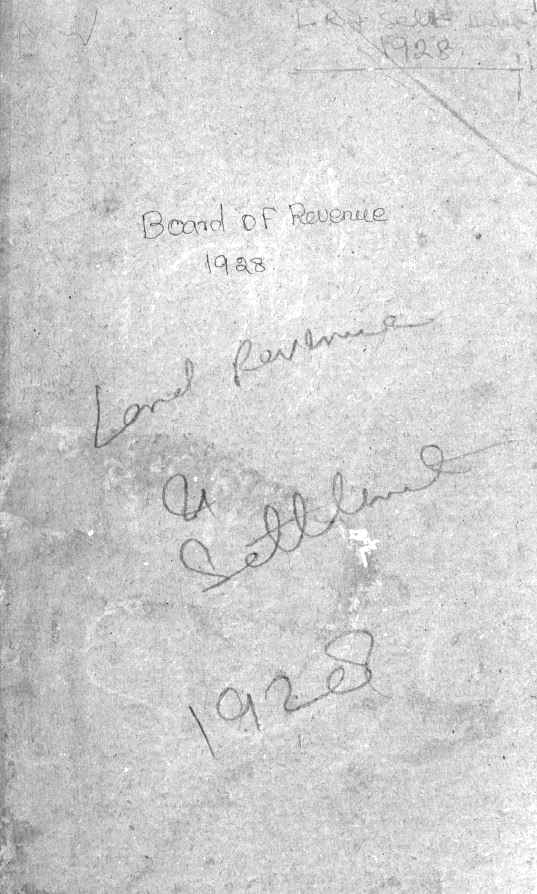 L R & Settt
1928
Board of Revenue
1928
Land Revenue
&
Settlement
1928